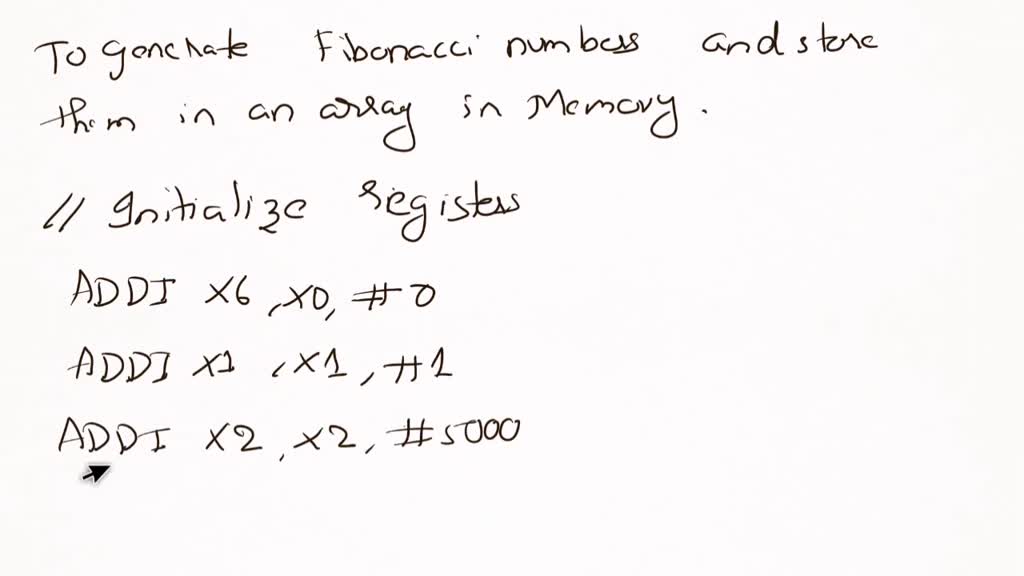 To generate Fibonacci numbers and store
them in an array in Memory.
// Initialize registers
ADDI X6, X0, #0
ADDI X1, X1, #1
ADDI X2, X2, #5000